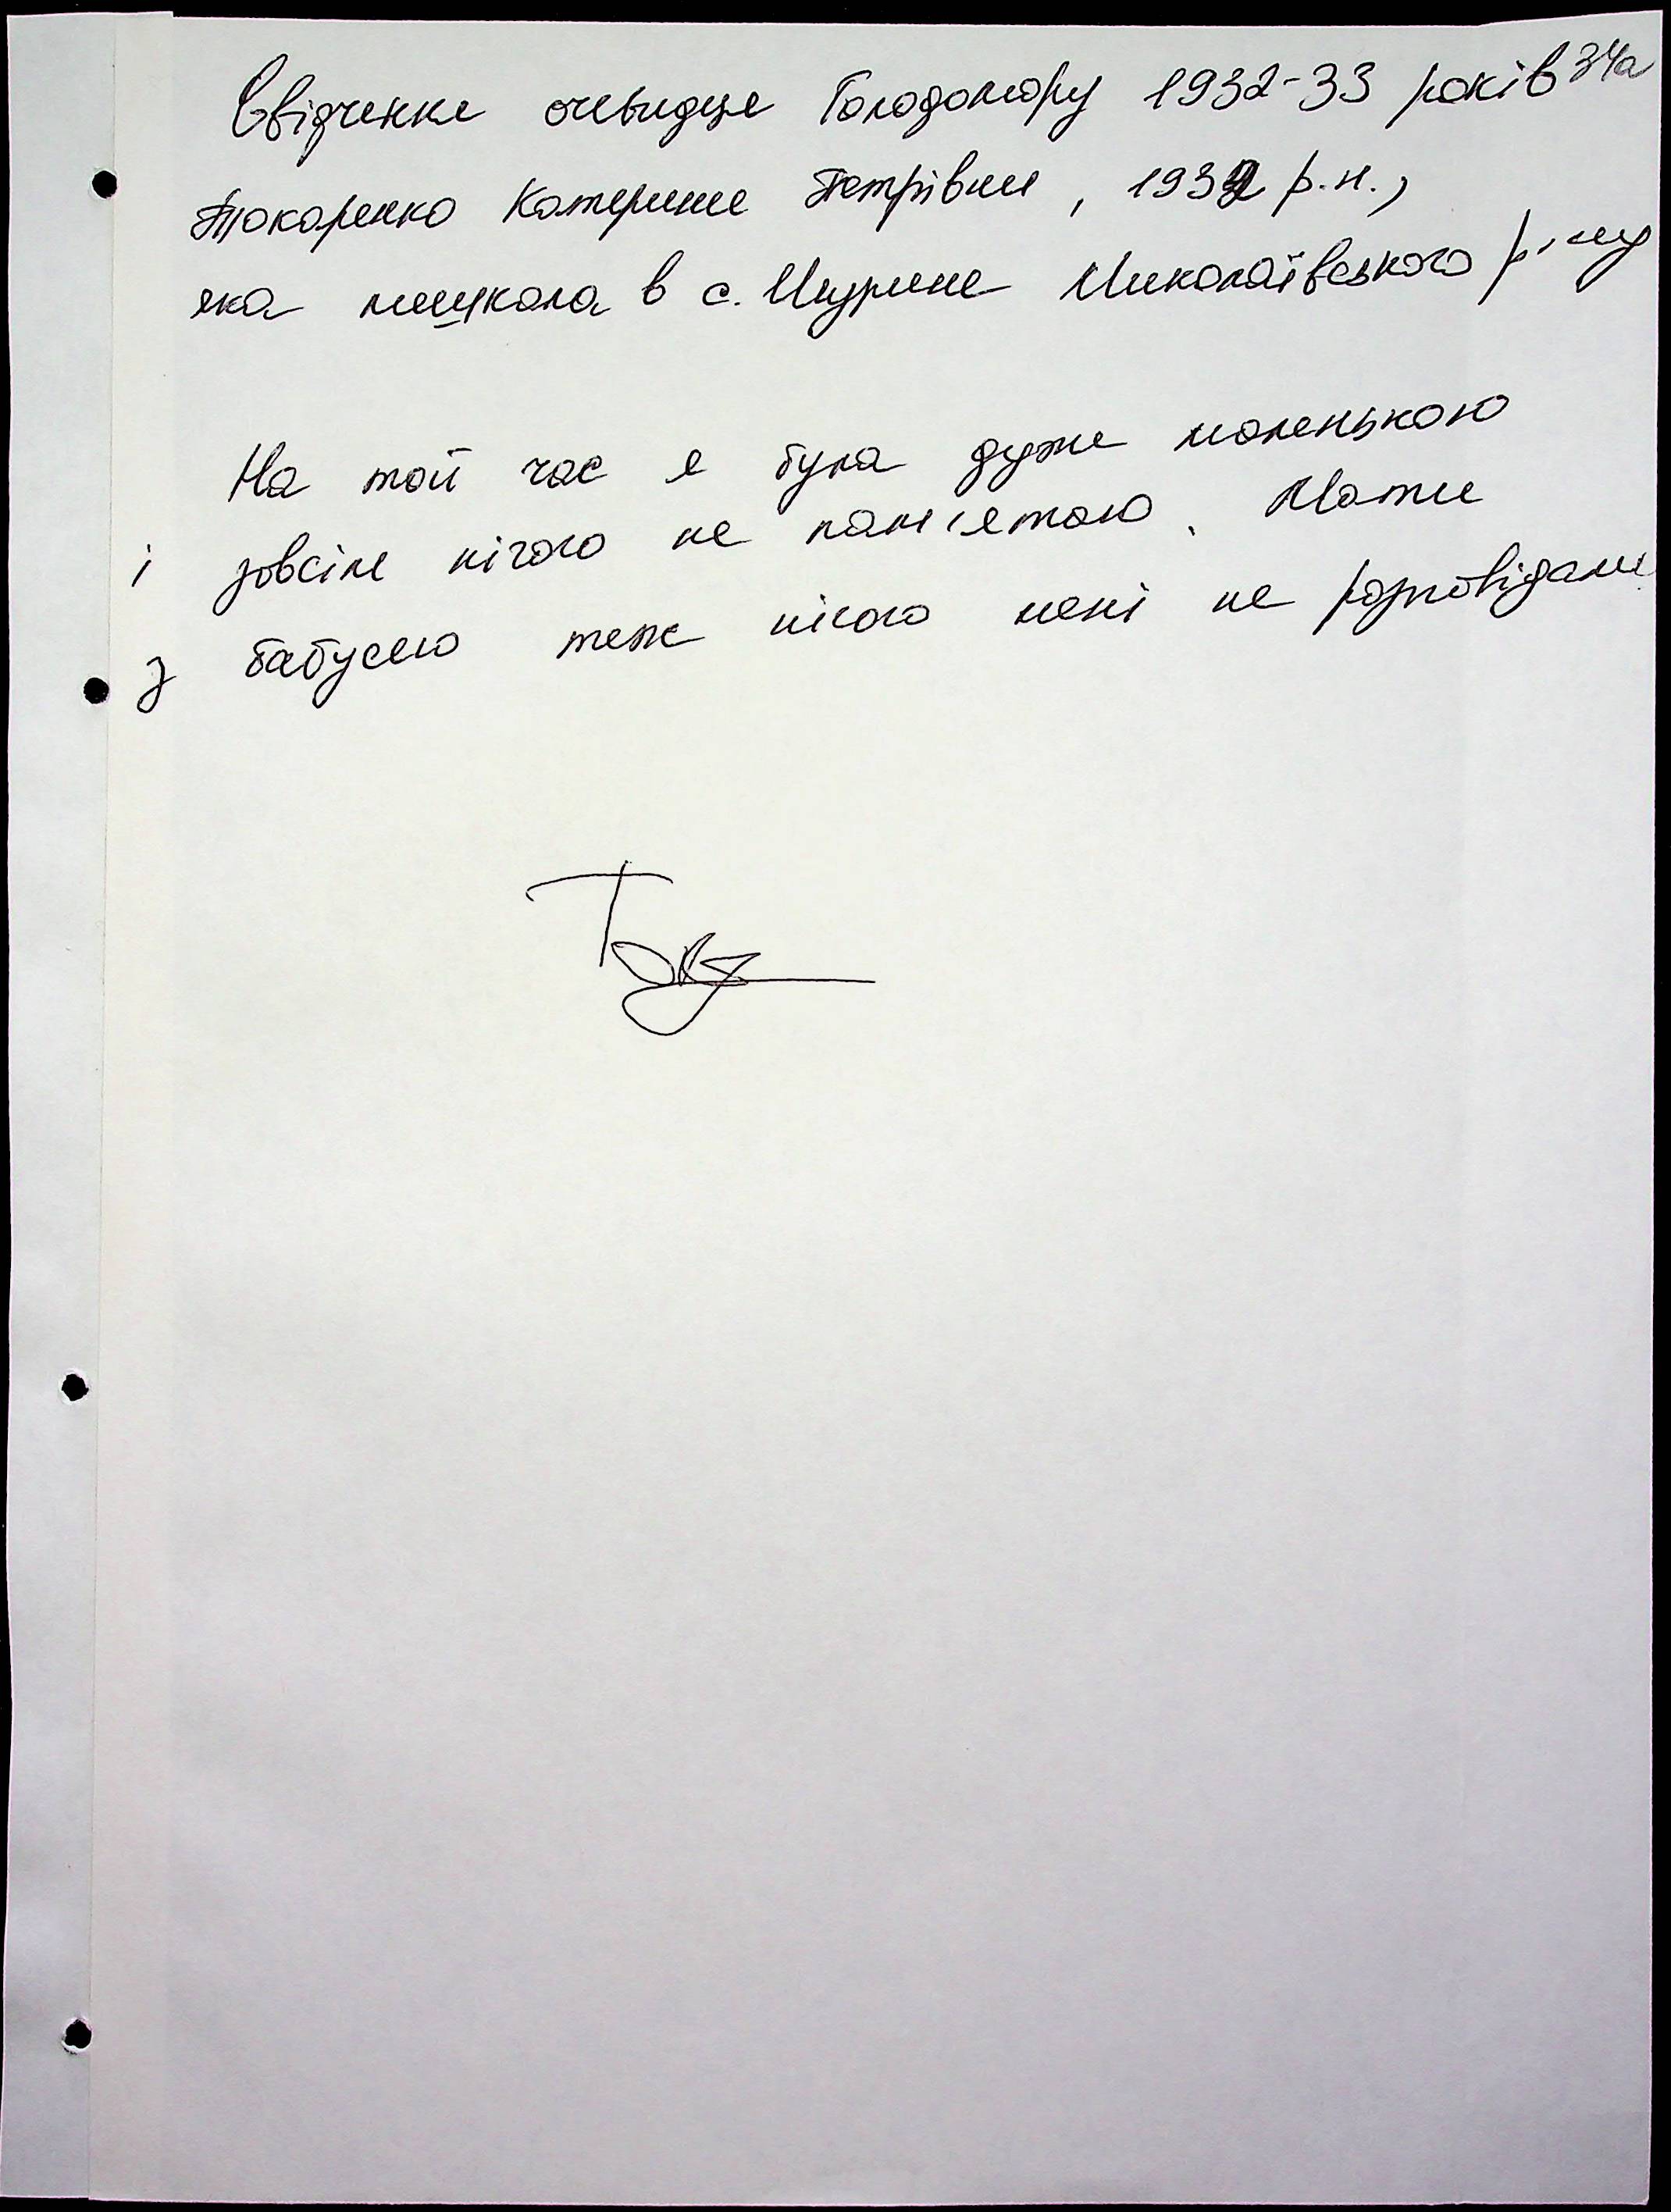 Свідчення очевидця Голодомору 1932-33 років 34а
Токаренко Катерини Петрівни, 1932 р.н.,
яка мешкала в с. Мирне Миколаївського р-ну
На той час я була дуже маленькою
і зовсім нічого не пам'ятаю. Мати
з бабусею теж нічого мені не розповідали.